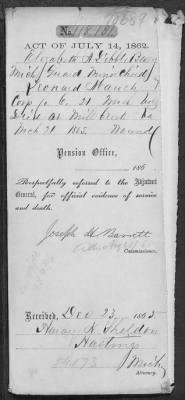 No. 118,151
ACT OF JULY 14, 1862.
Elizabeth A.
Mich Guard Minor Child
Leonard Hauch
Corp Co. E. 21 Mich
Died at Mill Creek
Mch 21 1865 Wound
Pension Office,
186
Respectfully referred to the Adjutant
General, for official evidence of service
and death.
Joseph H Barrett
Commissioner.
Received, Dec 23, 1865
H. Sheldon
Hastings
Mich
Attorney.